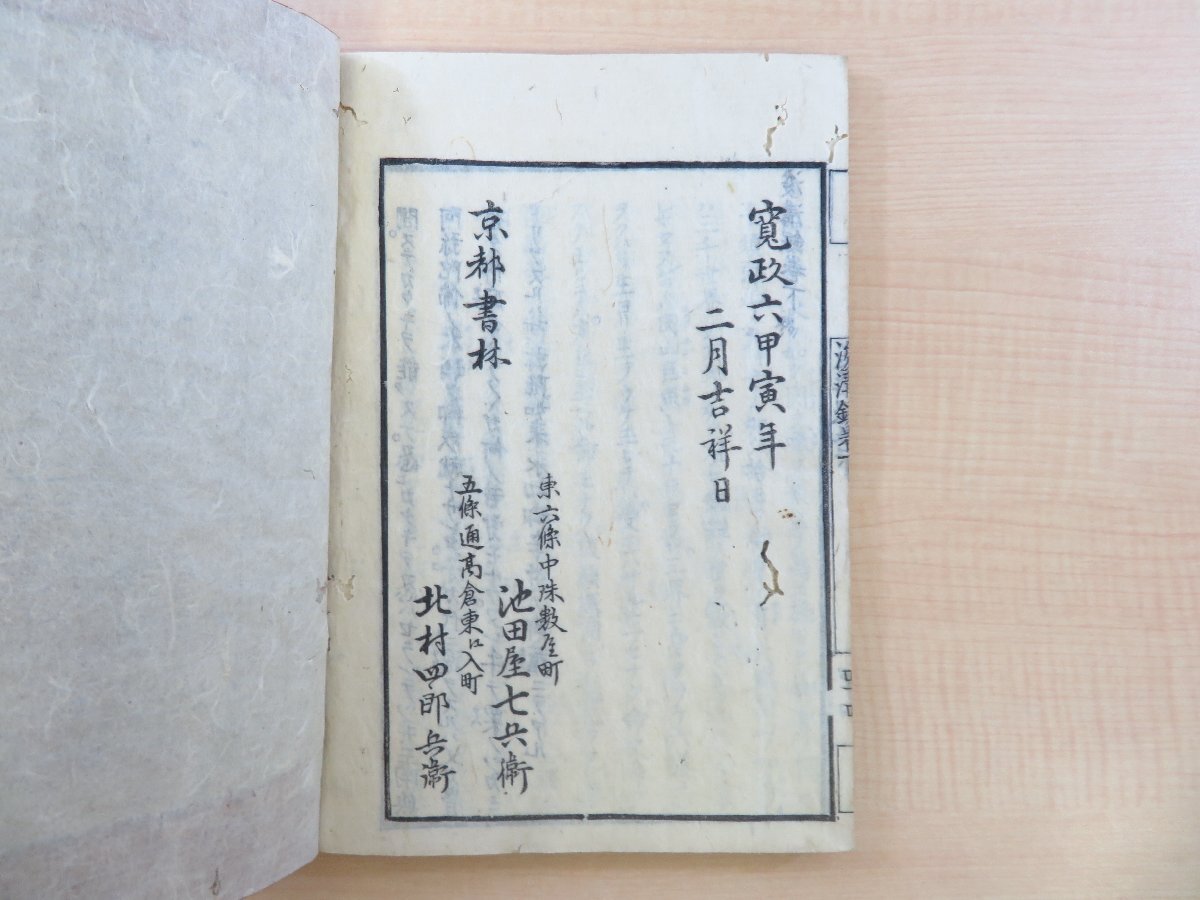 寛政六甲寅年
二月吉祥日
京都書林
東六條中珠数屋町
池田屋七兵衛
五條通高倉東江入町
北村四郎兵衛